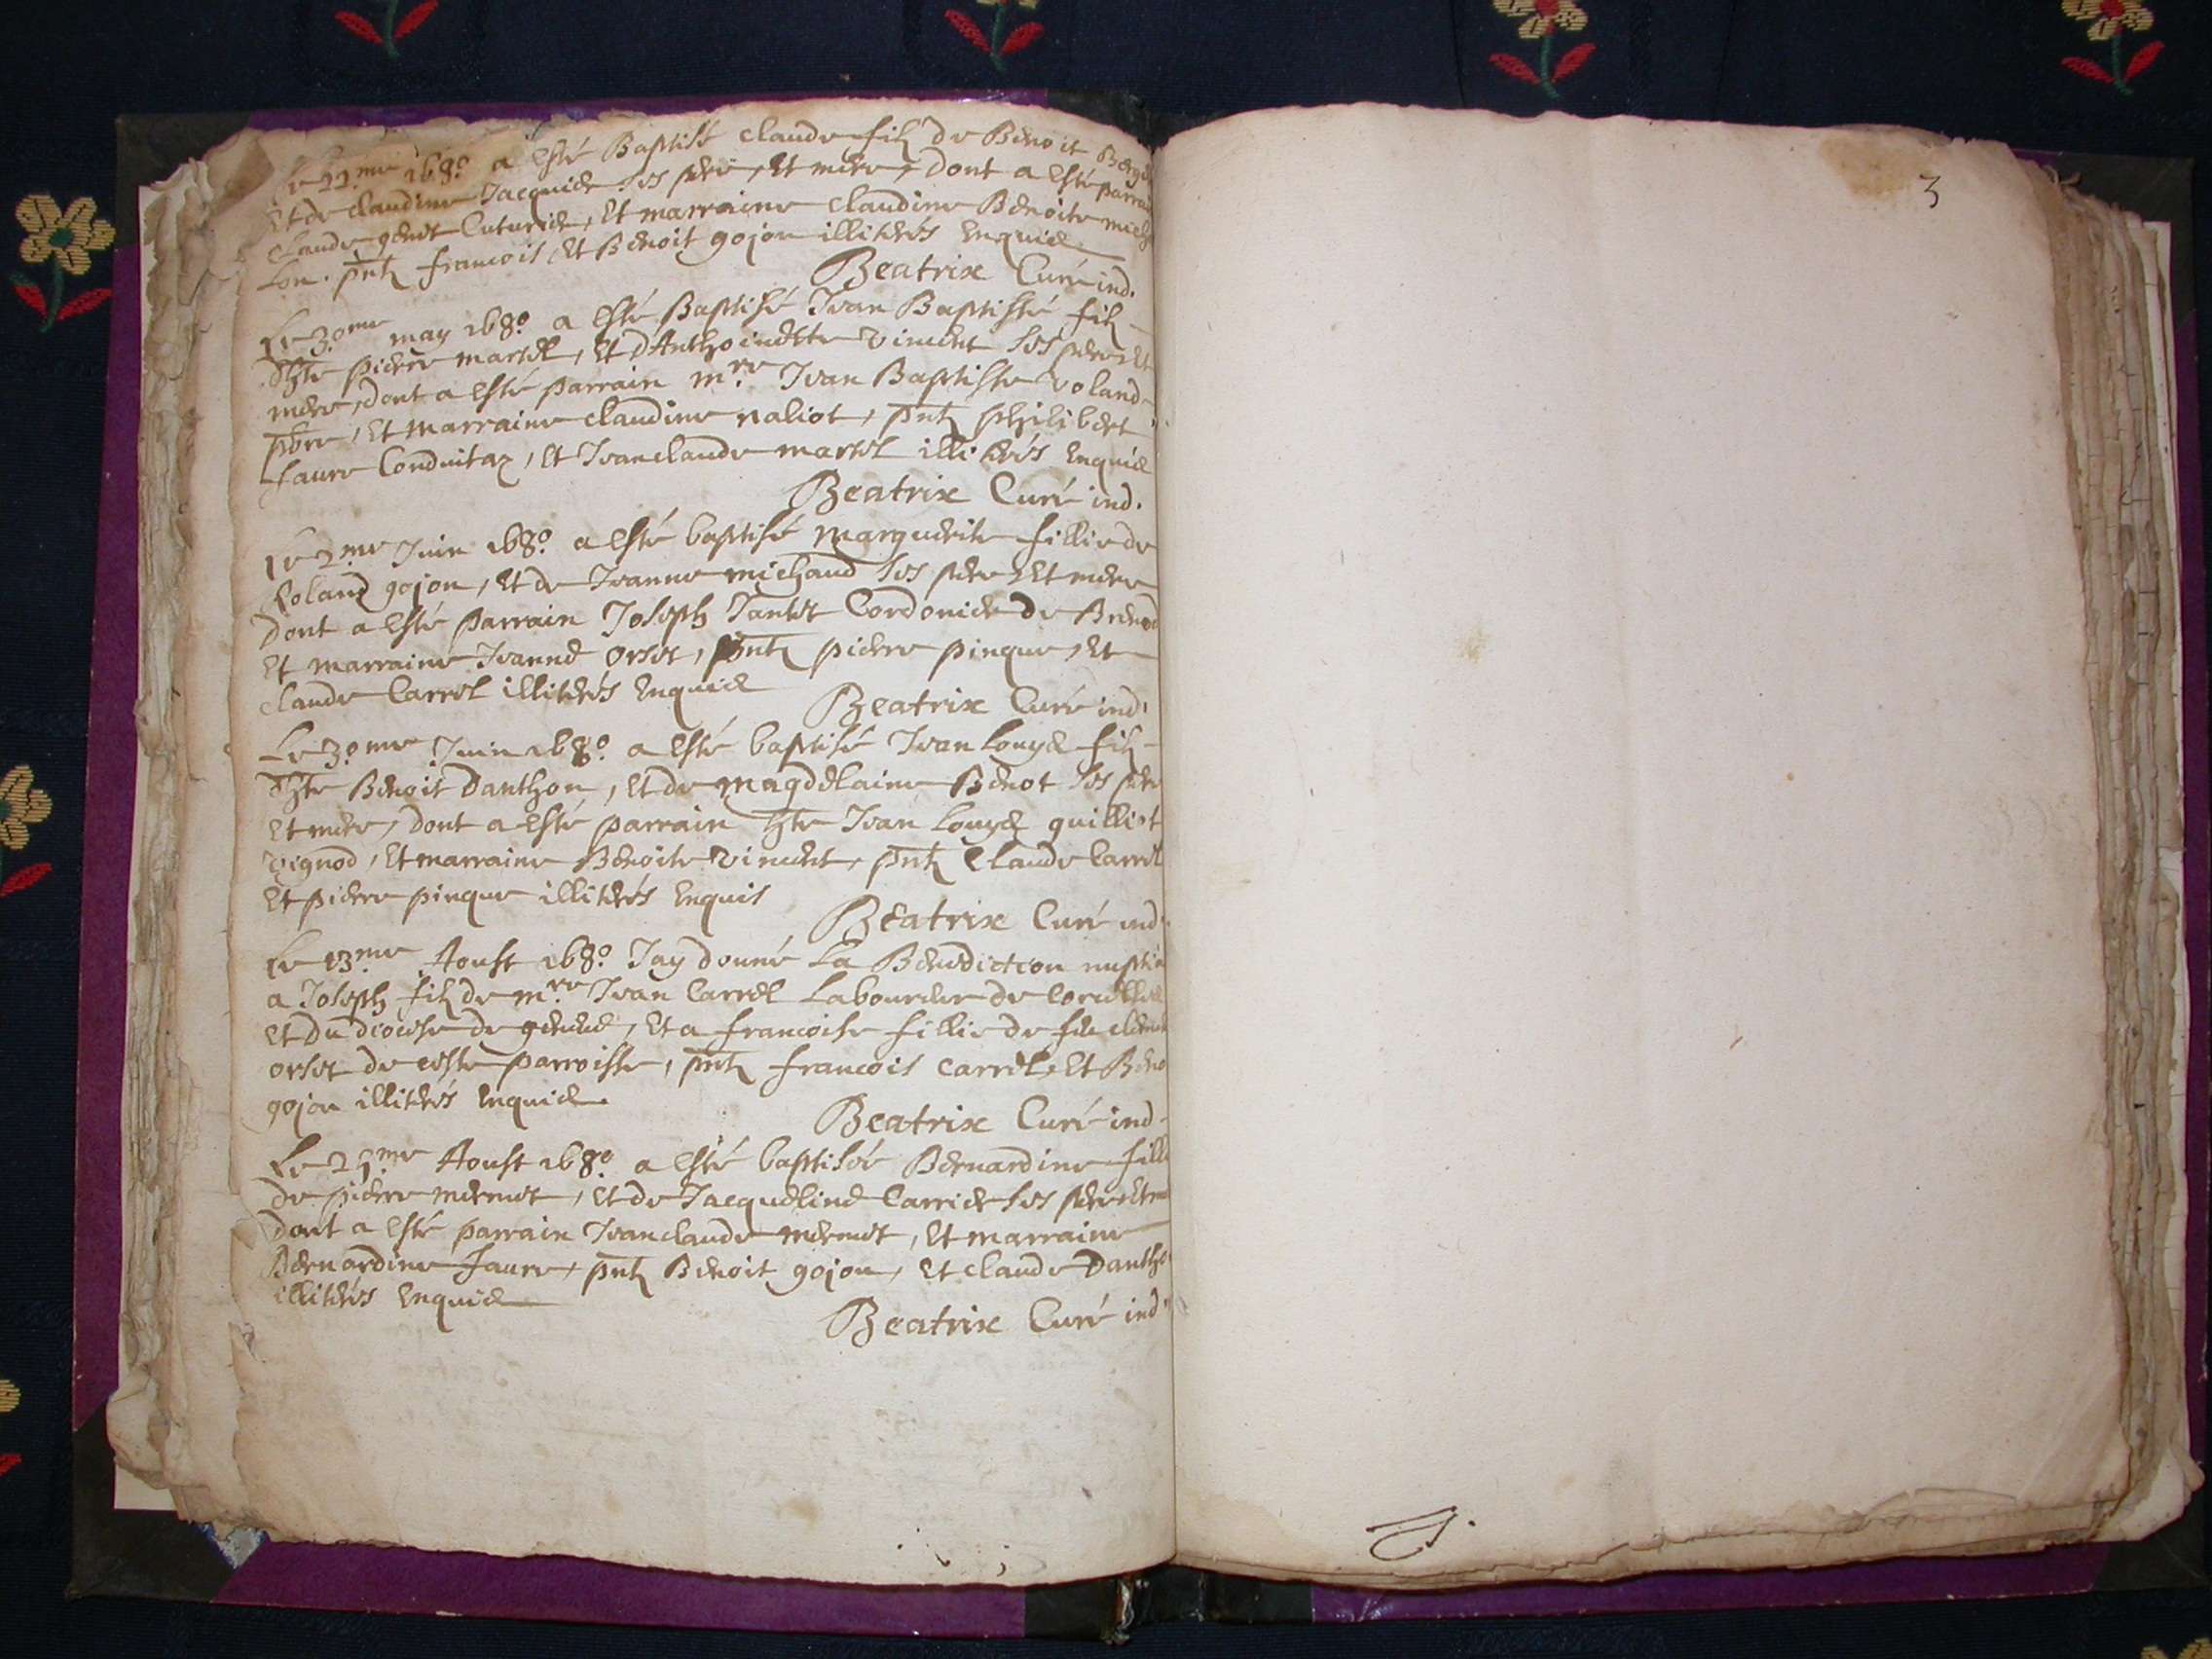 Le 22me 1680 a esté Baptisé claude filz de Benoit
Et de claudine Jacquier ses pere, Et mere, dont a esté parrain
claude genet Cuturier, Et marraine claudine Benoite mich
lon. pntz francois, Et Benoit gojon illiterés Enquis
Beatrix Curé ind.
Le 30me may 1680 a esté Baptisé Jean Baptiste filz
d'hte pierre martel, Et d'Anthoinette vincent ses pere, Et
mere, dont a esté parrain mre Jean Baptiste voland
pbre, Et marraine claudine naliot, pntz philibert
faure Conduitaz, Et Jeanclaude martel illiterés Enquis
Beatrix Curé ind.
Le 2me Juin 1680 a esté baptisé marguerite fillie de
Roland gojon, Et de Jeanne michaud ses pere, Et mere
dont a esté parrain Joseph Tantet Cordonier de Brenod
Et marraine Jeanne orset, pntz pierre pingue, Et
claude Carrel illiterés Enquis
Beatrix Curé ind.
Le 30me Juin 1680 a esté baptisé Jean louys filz
d'hte Benoit Danthon, Et de magdelaine Benot ses pere
Et mere, dont a esté parrain hte Jean louys guilliot
vignod, Et marraine Benoite vincent, pntz Claude Carrel
Et pierre pingue illiterés Enquis
Beatrix Curé ind.
Le 13me Aoust 1680 Jay donné La Benediction nuptia
a Joseph filz de mre Jean Carrel Laboureur de
Et du diocese de geneve, Et a francoise fillie de feu
orset de ceste parroisse, pntz francois Carrel, Et Beno
gojon illiterés Enquis
Beatrix Curé ind.
Le 25me Aoust 1680 a esté baptisée Bernardine filli
de pierre mermet, Et de Jacqueline Carrier ses pere, Et me
dont a esté parrain Jeanclaude mermet, Et marraine
Bernardine faure, pntz Benoit gojon, Et claude Dantho
illiterés Enquis
Beatrix Curé ind.
3